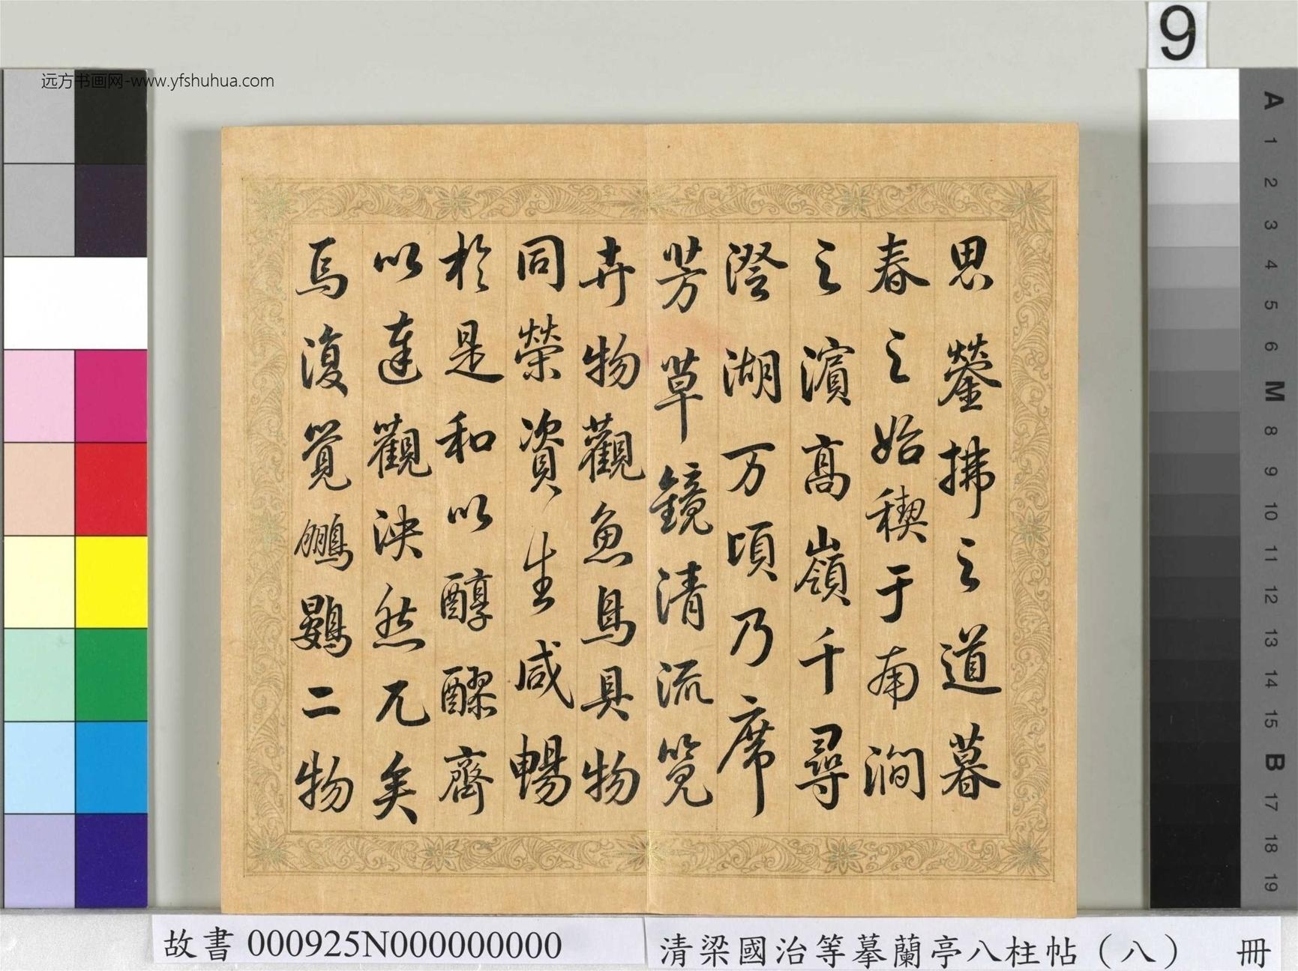 远方书画网-www.yfshuhua.com
9
思鎣拂之道暮
春之始禊于南澗
之濱高嶺千尋
澄湖万頃乃席
芳草鏡清流覽
卉物觀魚鳥具物
同榮資生咸暢
於是和以醇醪齊
以達觀泱然兀矣
焉復覺鵬鷃二物
A 1 2 3 4 5 6 M 8 9 10 11 12 13 14 15 B 17 18 19
故書 000925N000000000
清梁國治等摹蘭亭八柱帖（八） 冊